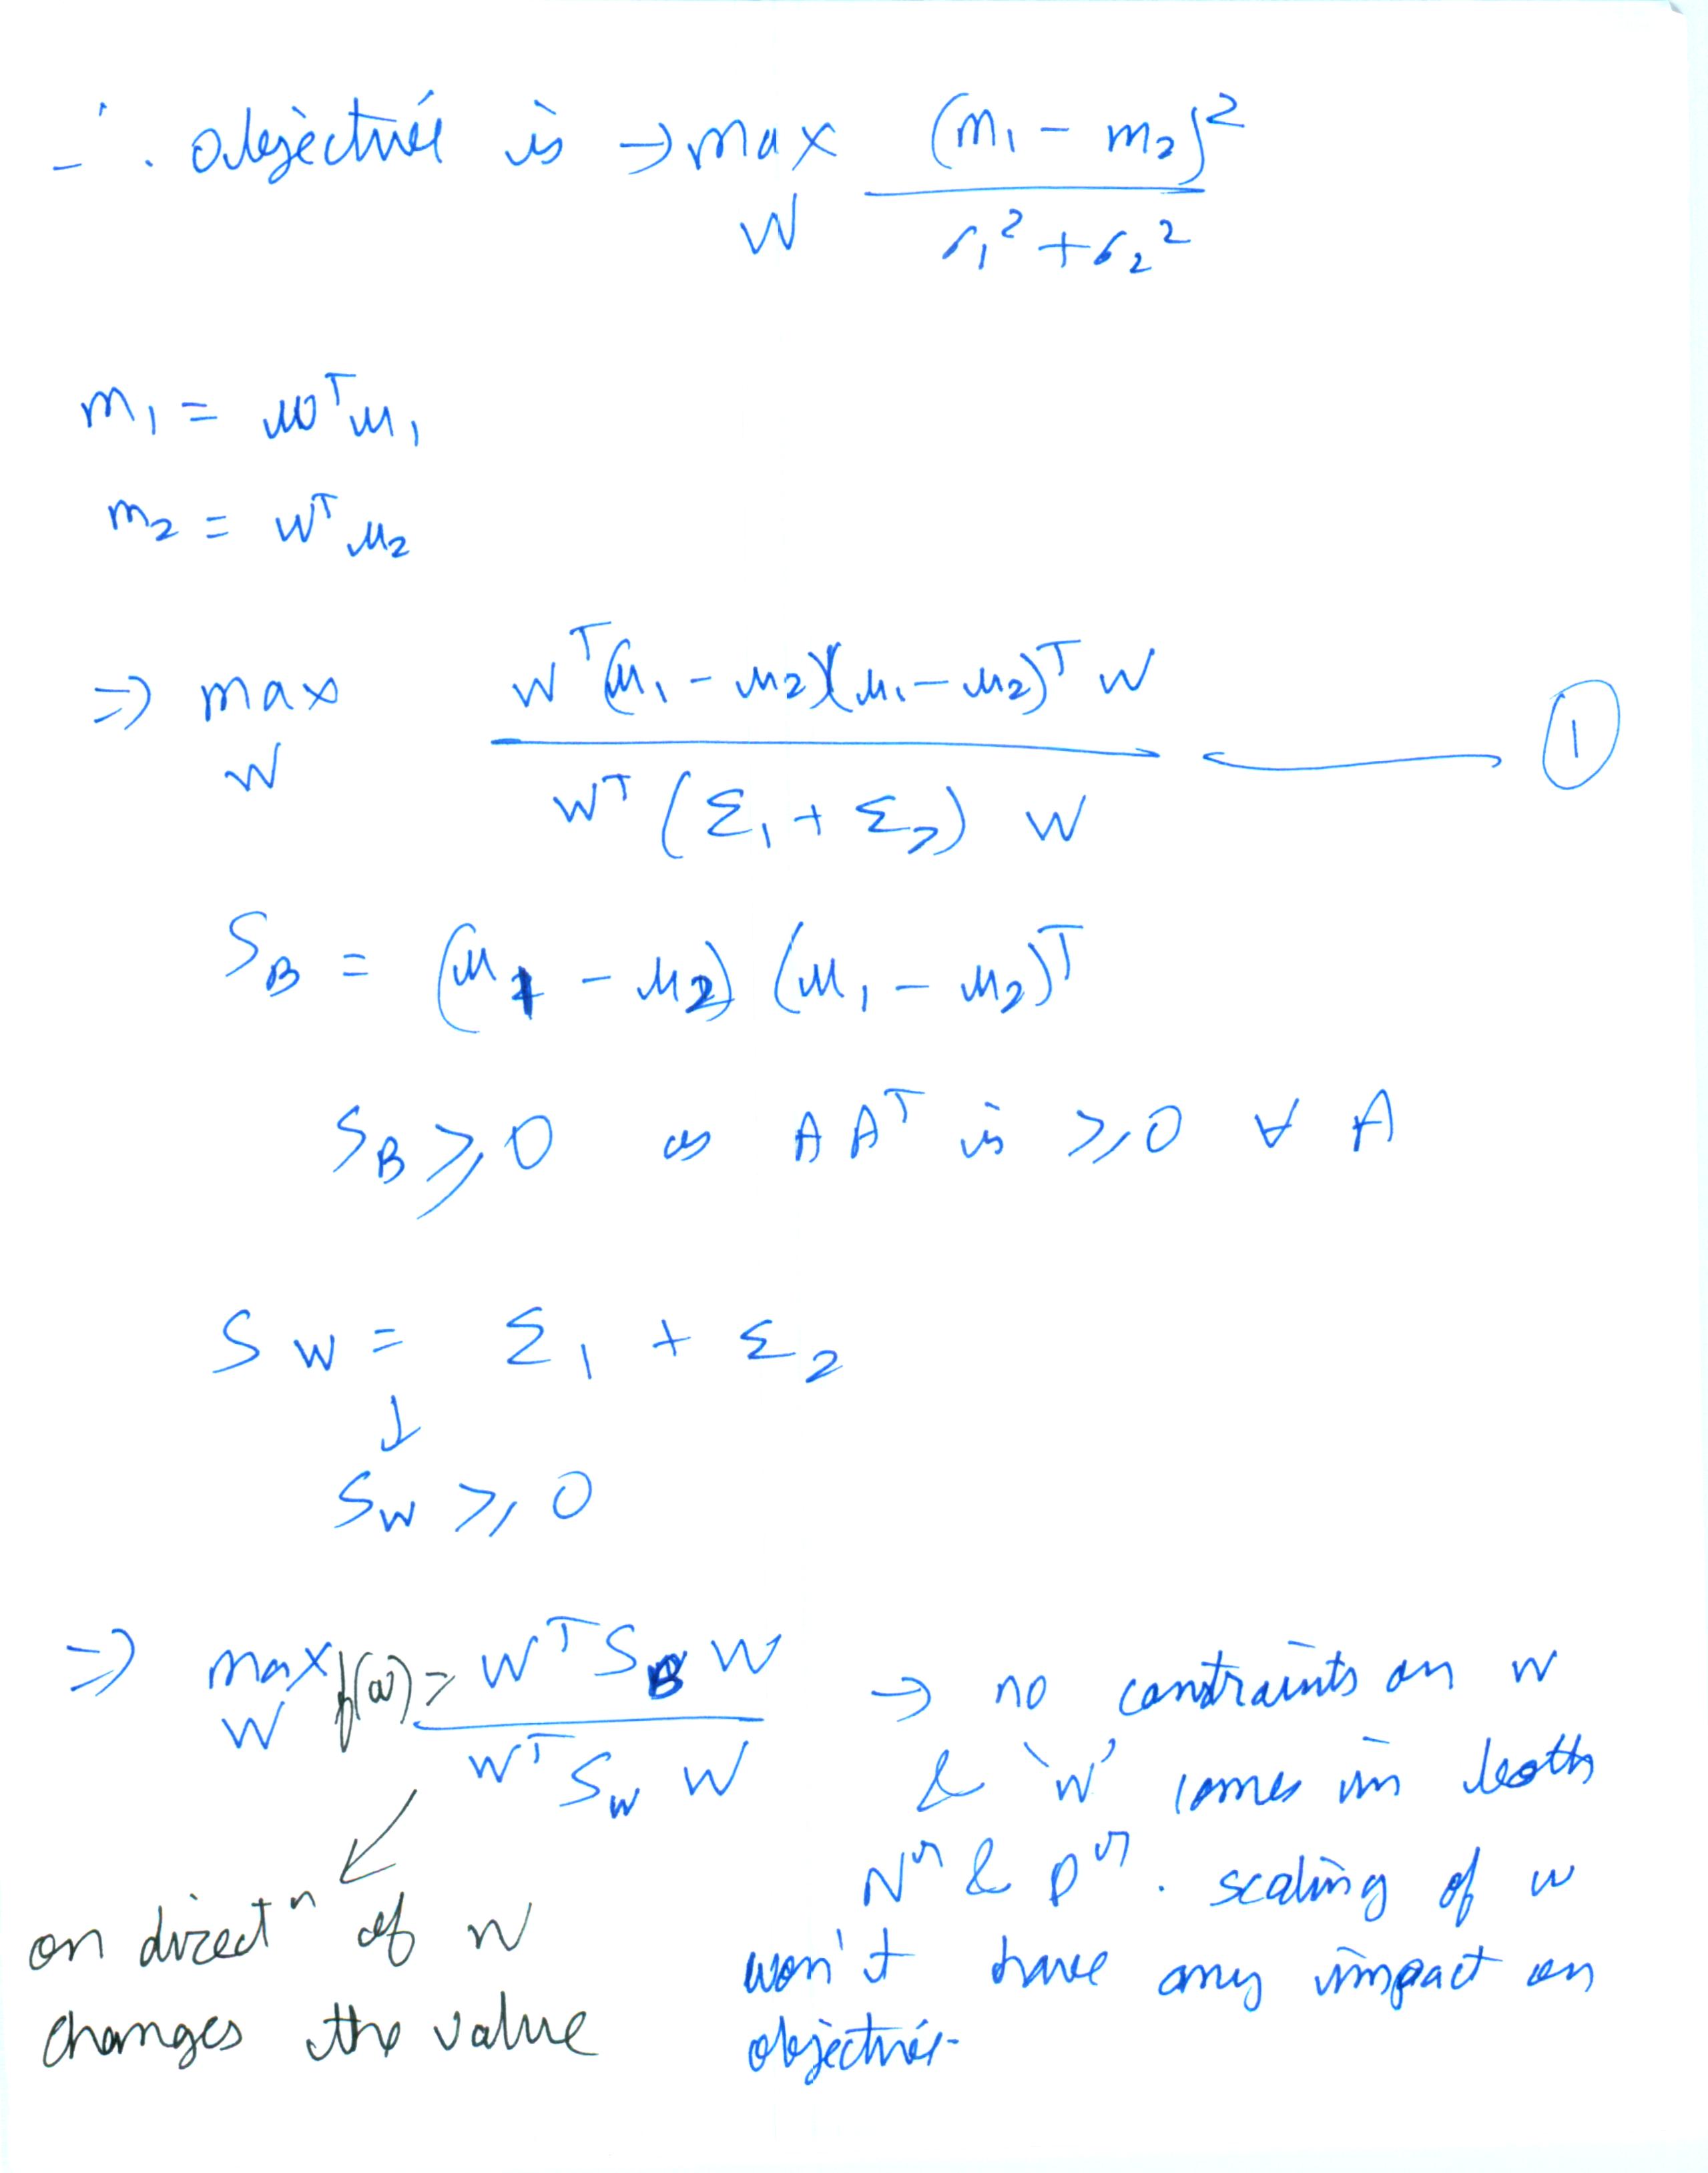 ∴ objective is → max (m₁ - m₂)²
W σ₁² + σ₂²
m₁ = wᵀμ₁
m₂ = wᵀμ₂
⇒ max wᵀ(μ₁ - μ₂)(μ₁ - μ₂)ᵀ w ①
W wᵀ (Σ₁ + Σ₂) w
S_B = (μ₁ - μ₂) (μ₁ - μ₂)ᵀ
S_B ⩾ 0 as A Aᵀ is ⩾ 0 ∀ A
S_W = Σ₁ + Σ₂
↓
S_W ⩾ 0
⇒ max f(w) = wᵀ S_B w → no constraints on w
W wᵀ S_W w & 'w' comes in both
Nʳ & Dʳ. scaling of w
won't have any impact on
objective.
on directⁿ of w
changes the value